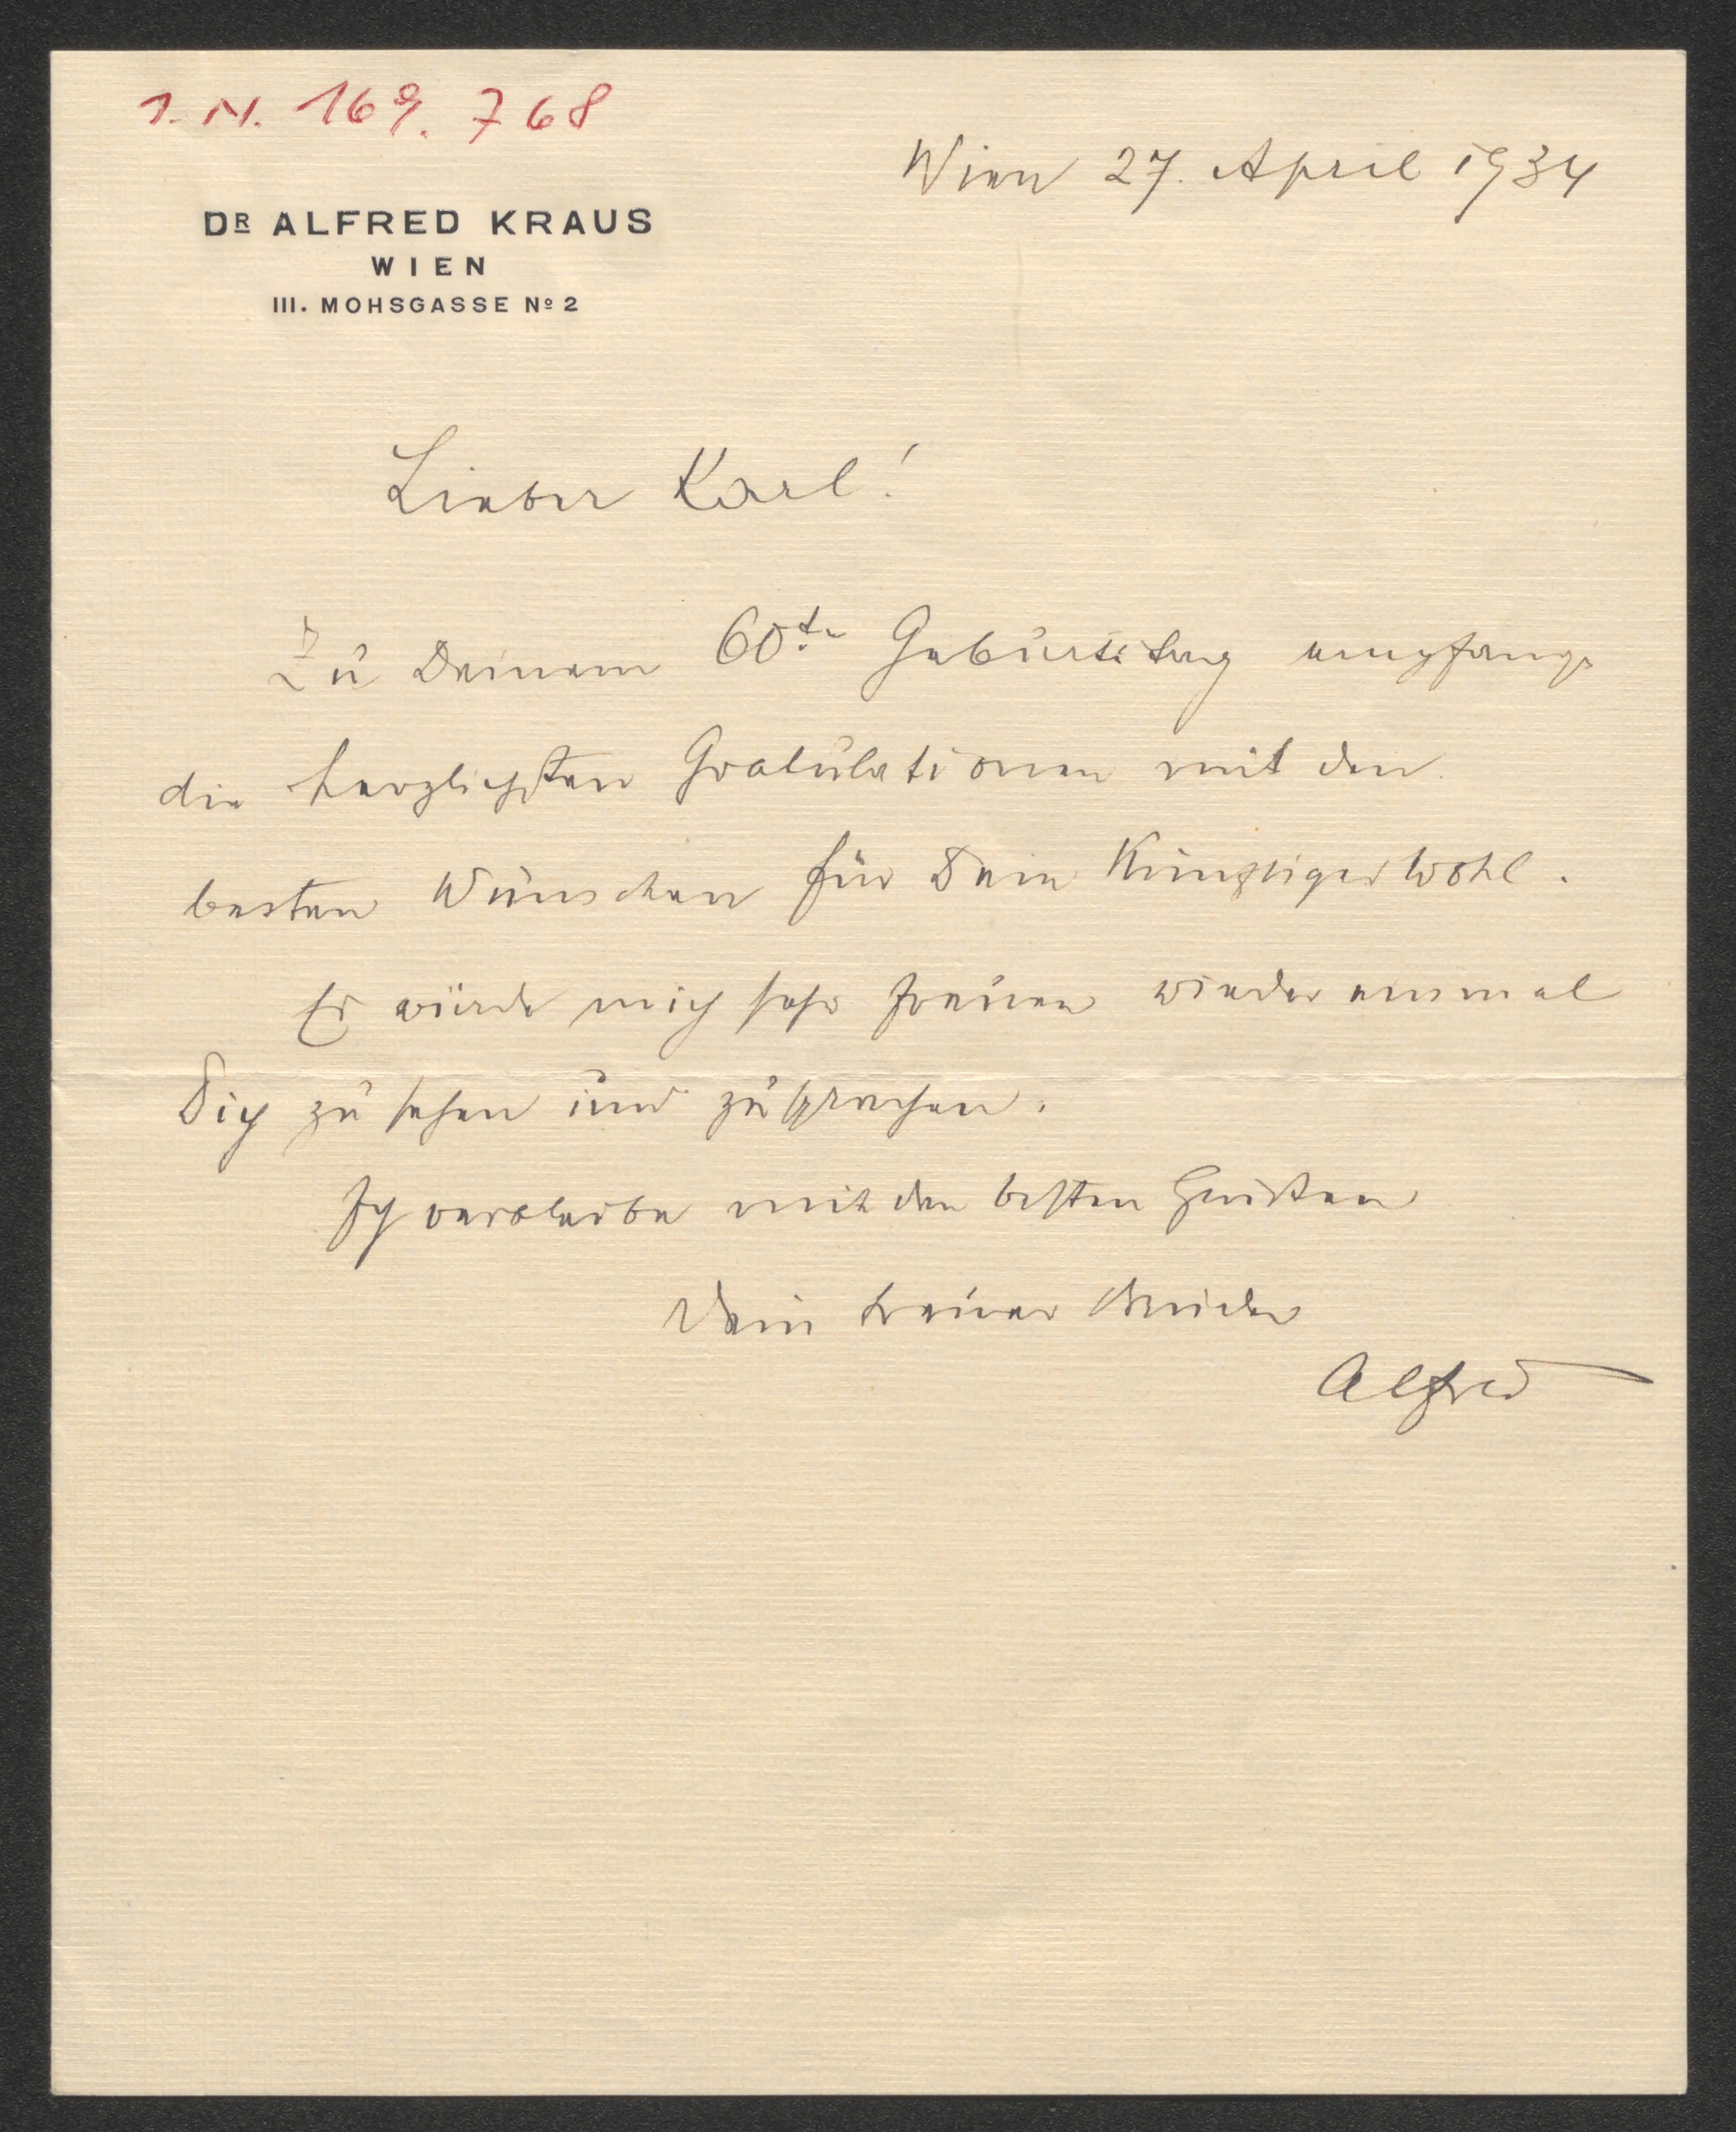 I.N. 169.768
Wien 27. April 1934
DR ALFRED KRAUS
WIEN
III. MOHSGASSE No 2
Lieber Karl!
Zu Deinem 60ten Geburtstag empfange
die herzlichsten Gratulationen mit den
besten Wünschen für Dein künftiges Wohl.
Es würde mich sehr freuen wieder einmal
Dich zu sehen und zu sprechen.
Ich verbleibe mit den besten Grüßen
Dein treuer Bruder
Alfred